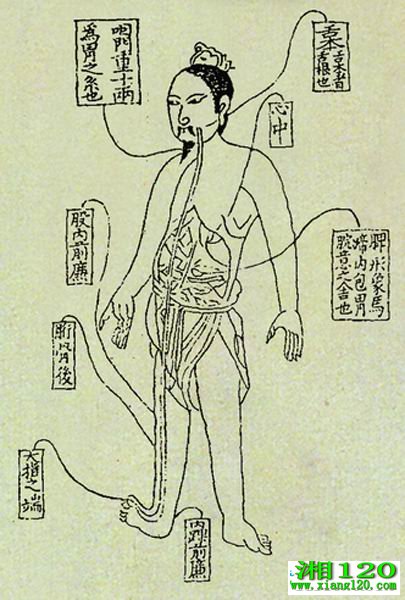 咽門重十兩
為胃之系也
舌本
舌本者
舌根也
心中
股內前廉
脾形象馬
蹄內包胃
脘意之舍也
胻骨後
大指之端
內踝前廉
湘120
www.xiang120.com